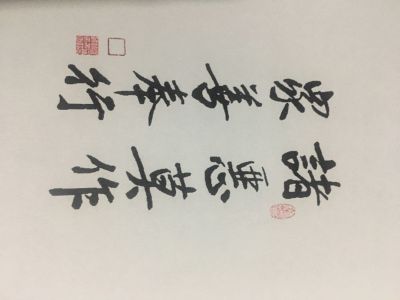 諸惡莫作
眾善奉行